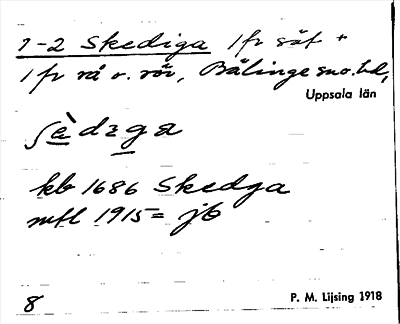 1-2 Skediga 1 fr sät +
1 fr rå o. rör, Bälinge sn o. hd,
Uppsala län
ʃè dɜga
kb 1686 Skedga
mtl 1915 = jb
8
P. M. Lijsing 1918